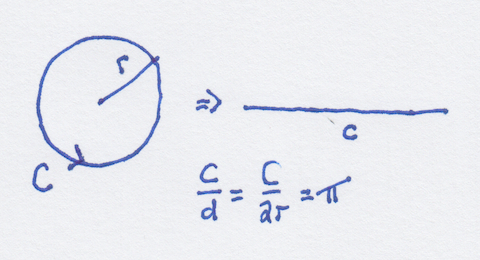 r
⇒
C
c
C/d = C/2r = π